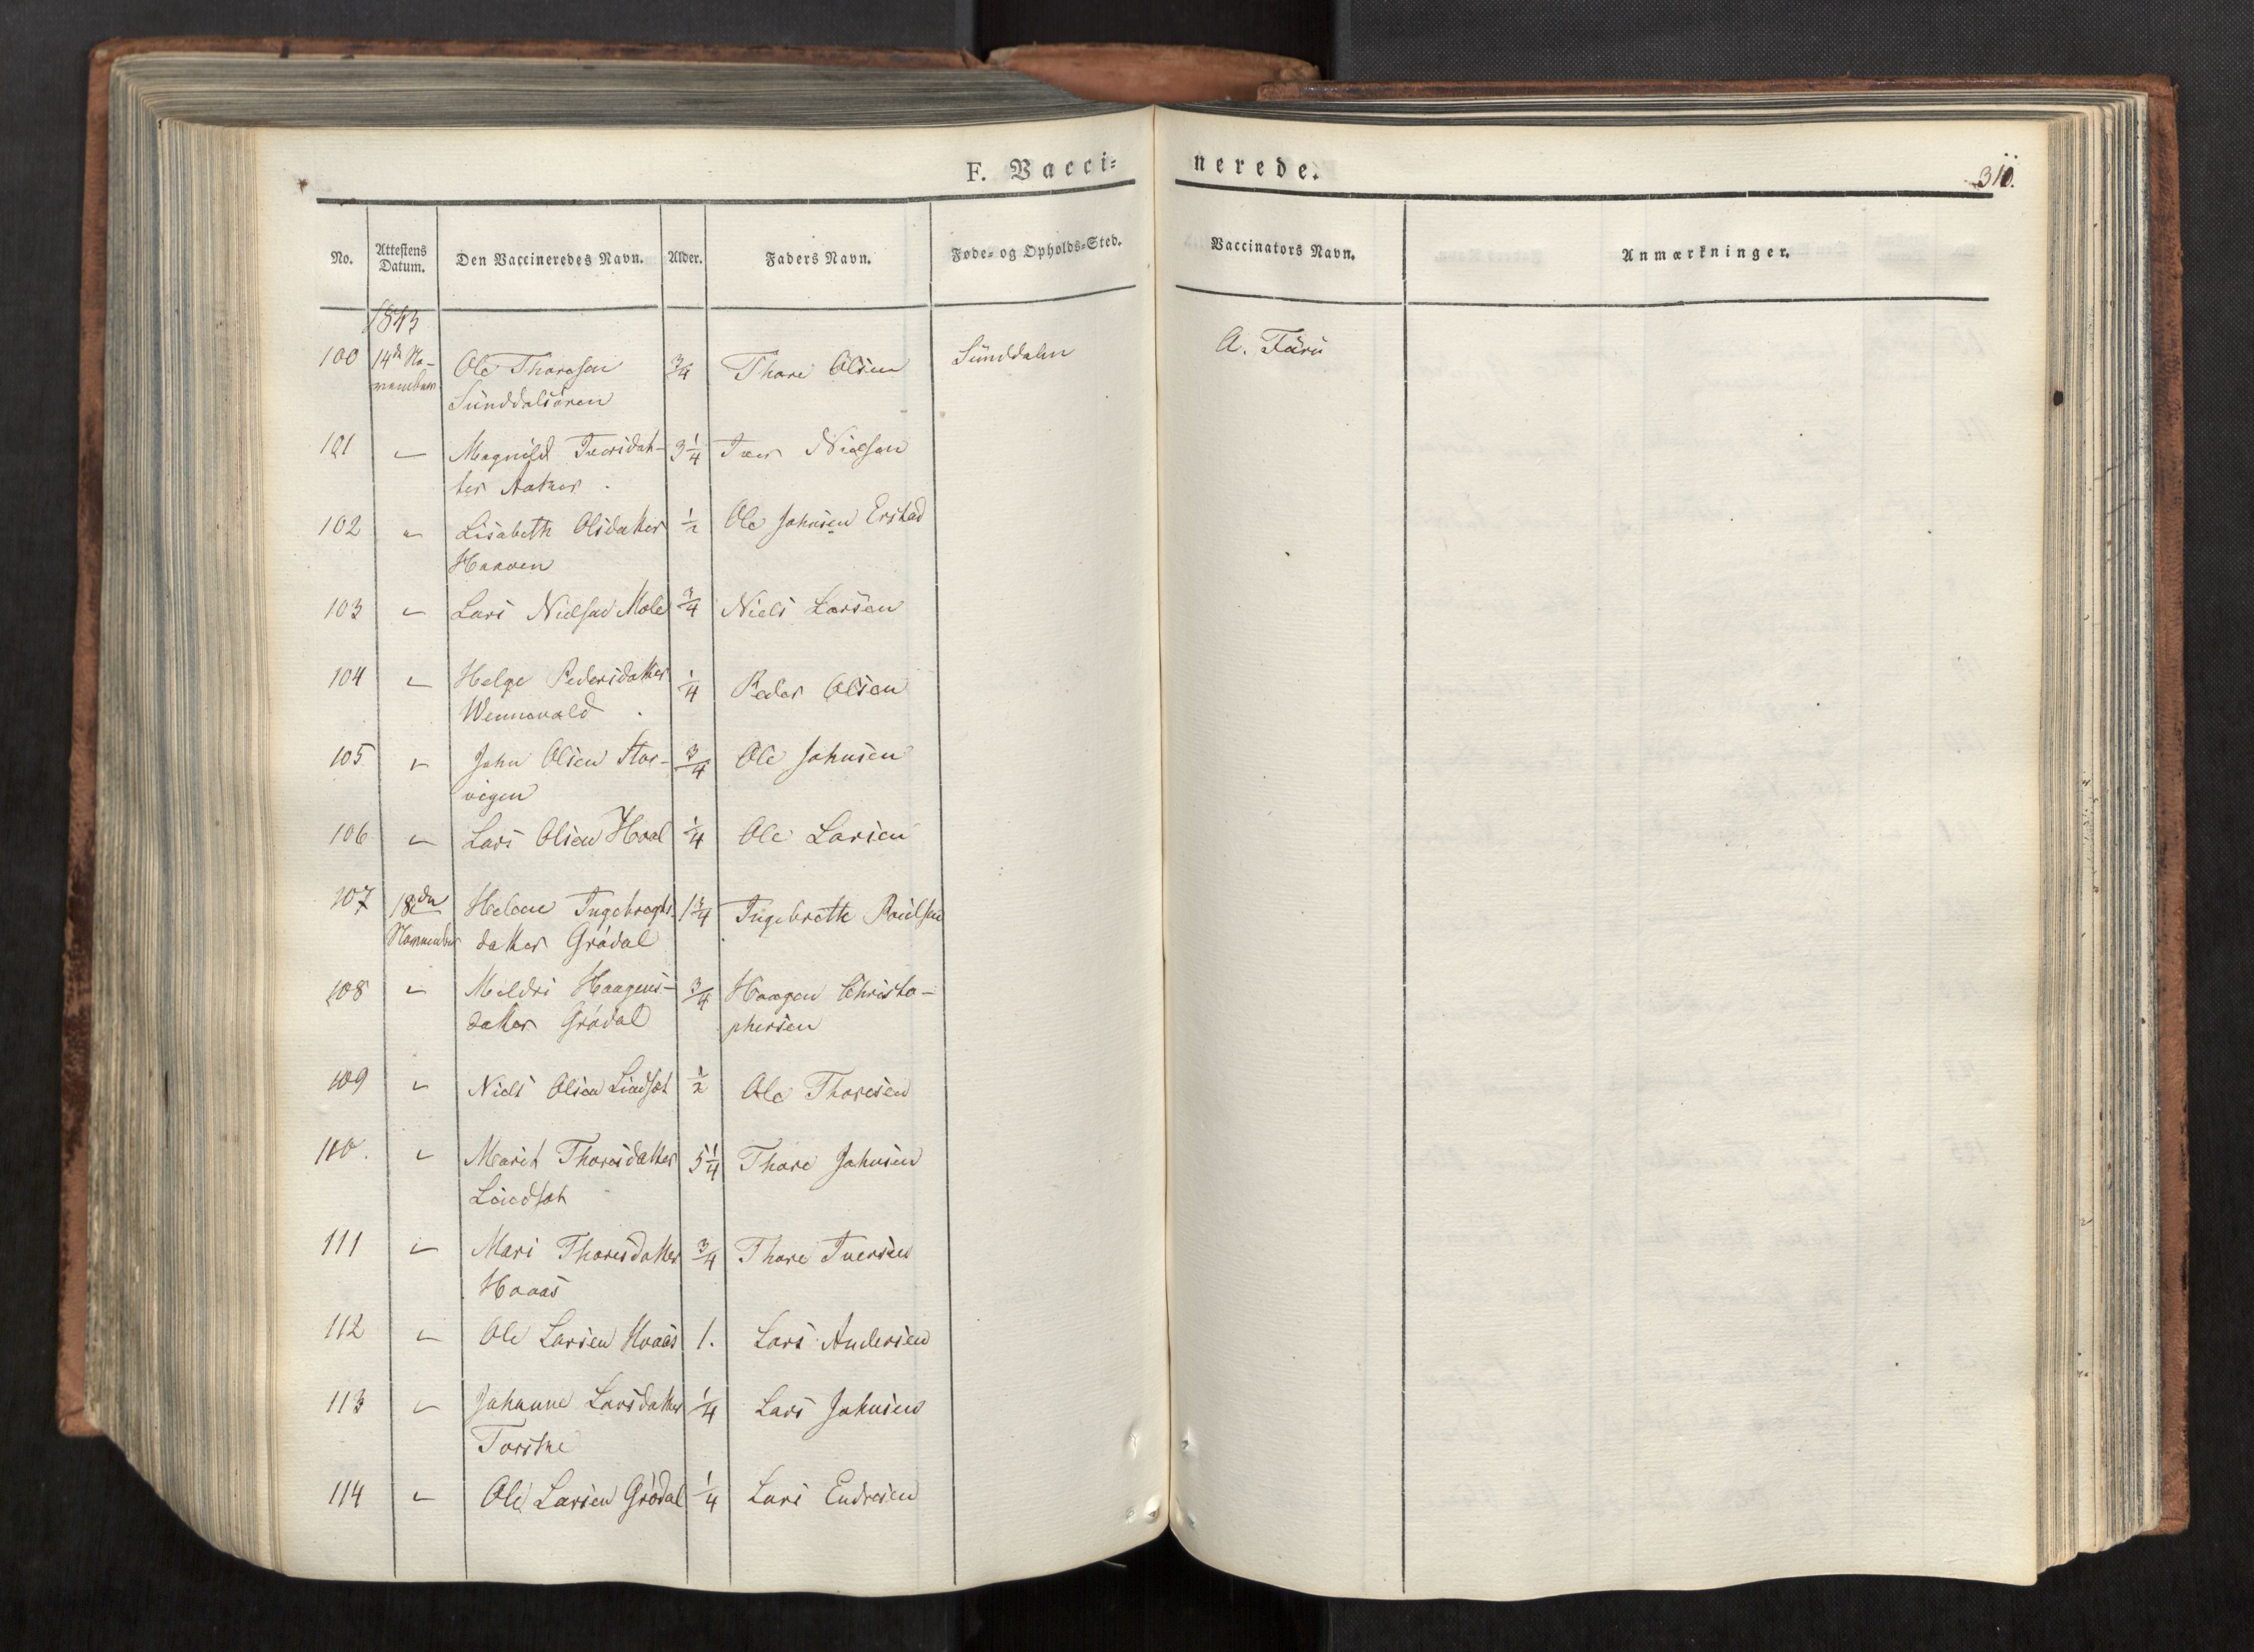 F. Vacci=
nerede.
310.
No.
Attestens Datum.
Den Vaccineredes Navn.
Alder.
Faders Navn.
Føde= og Opholds=Sted.
Vaccinators Navn.
Anmærkninger.
1843
100 14de No- Ole Thoresen 3/4 Thore Olsen Sünddalen A. Färü
vember Sünddalsøren
101 〃 Magnild Iversdat- 3 1/4 Iver Nielsen
ter Aaker.
102 〃 Lisabeth Olsdatter 1/2 Ole Johnsen Erstad
Haaven
103 〃 Lars Nielsen Mole 3/4 Niels Larsen
104 〃 Helge Pedersdatter 1/4 Peder Olsen
Wennevald.
105 〃 John Olsen Stor- 3/4 Ole Johnsen
vigen
106 〃 Lars Olsen Hoel 1/4 Ole Larsen
107 18de Helene Ingebregts- 1 3/4 Ingebreth Poülsen
November datter Grødal
108 〃 Meldri Haagens- 3/4 Haagen Christo-
datter Grødal phersen
109 〃 Niels Olsen Lindset 1/2 Ole Thoresen
110. 〃 Marit Thoresdatter 5 1/4 Thore Johnsen
Lindset
111 〃 Mari Thoresdatter 3/4 Thore Iversen
Hoaas
112 〃 Ole Larsen Hoaas 1. Lars Andersen
113 〃 Johanne Larsdatter 1/4 Lars Johnsen
Torske
114 〃 Ole Larsen Grødal 1/4 Lars Endresen